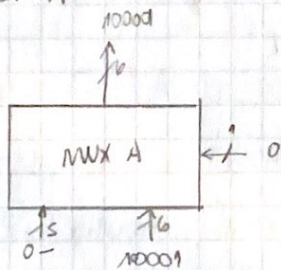 10001
6
MUX A
1 0
5 6
0- 10001